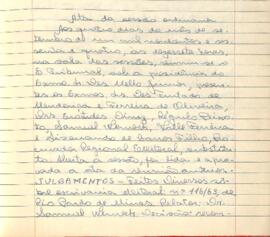 Ata da sessão ordinária
Aos quatro dias do mês de se-
tembro de mil novecentos e ses-
senta e quatro, às dezessete horas,
na sala das sessões, reuniu-se o
Tribunal, sob a presidência do
Exmo. Sr. Des. Mello Junior,
presentes os Exmos. Srs. Des. Furtado de
Mendonça e Ferreira de Oliveira,
Drs. Diniz, Régulo Peixoto,
Samuel Werneck, Valle Ferreira
e Lissandro de Filho, Pro-
curador Regional Eleitoral substituto.
Aberta a sessão, foi lida e apro-
vada a ata da reunião anterior.
JULGAMENTOS - Feitos Diversos
escrivania eleitoral nº 116/63, de
Rio Pardo de Minas. Relator: Dr.
Samuel Werneck. Decisão: